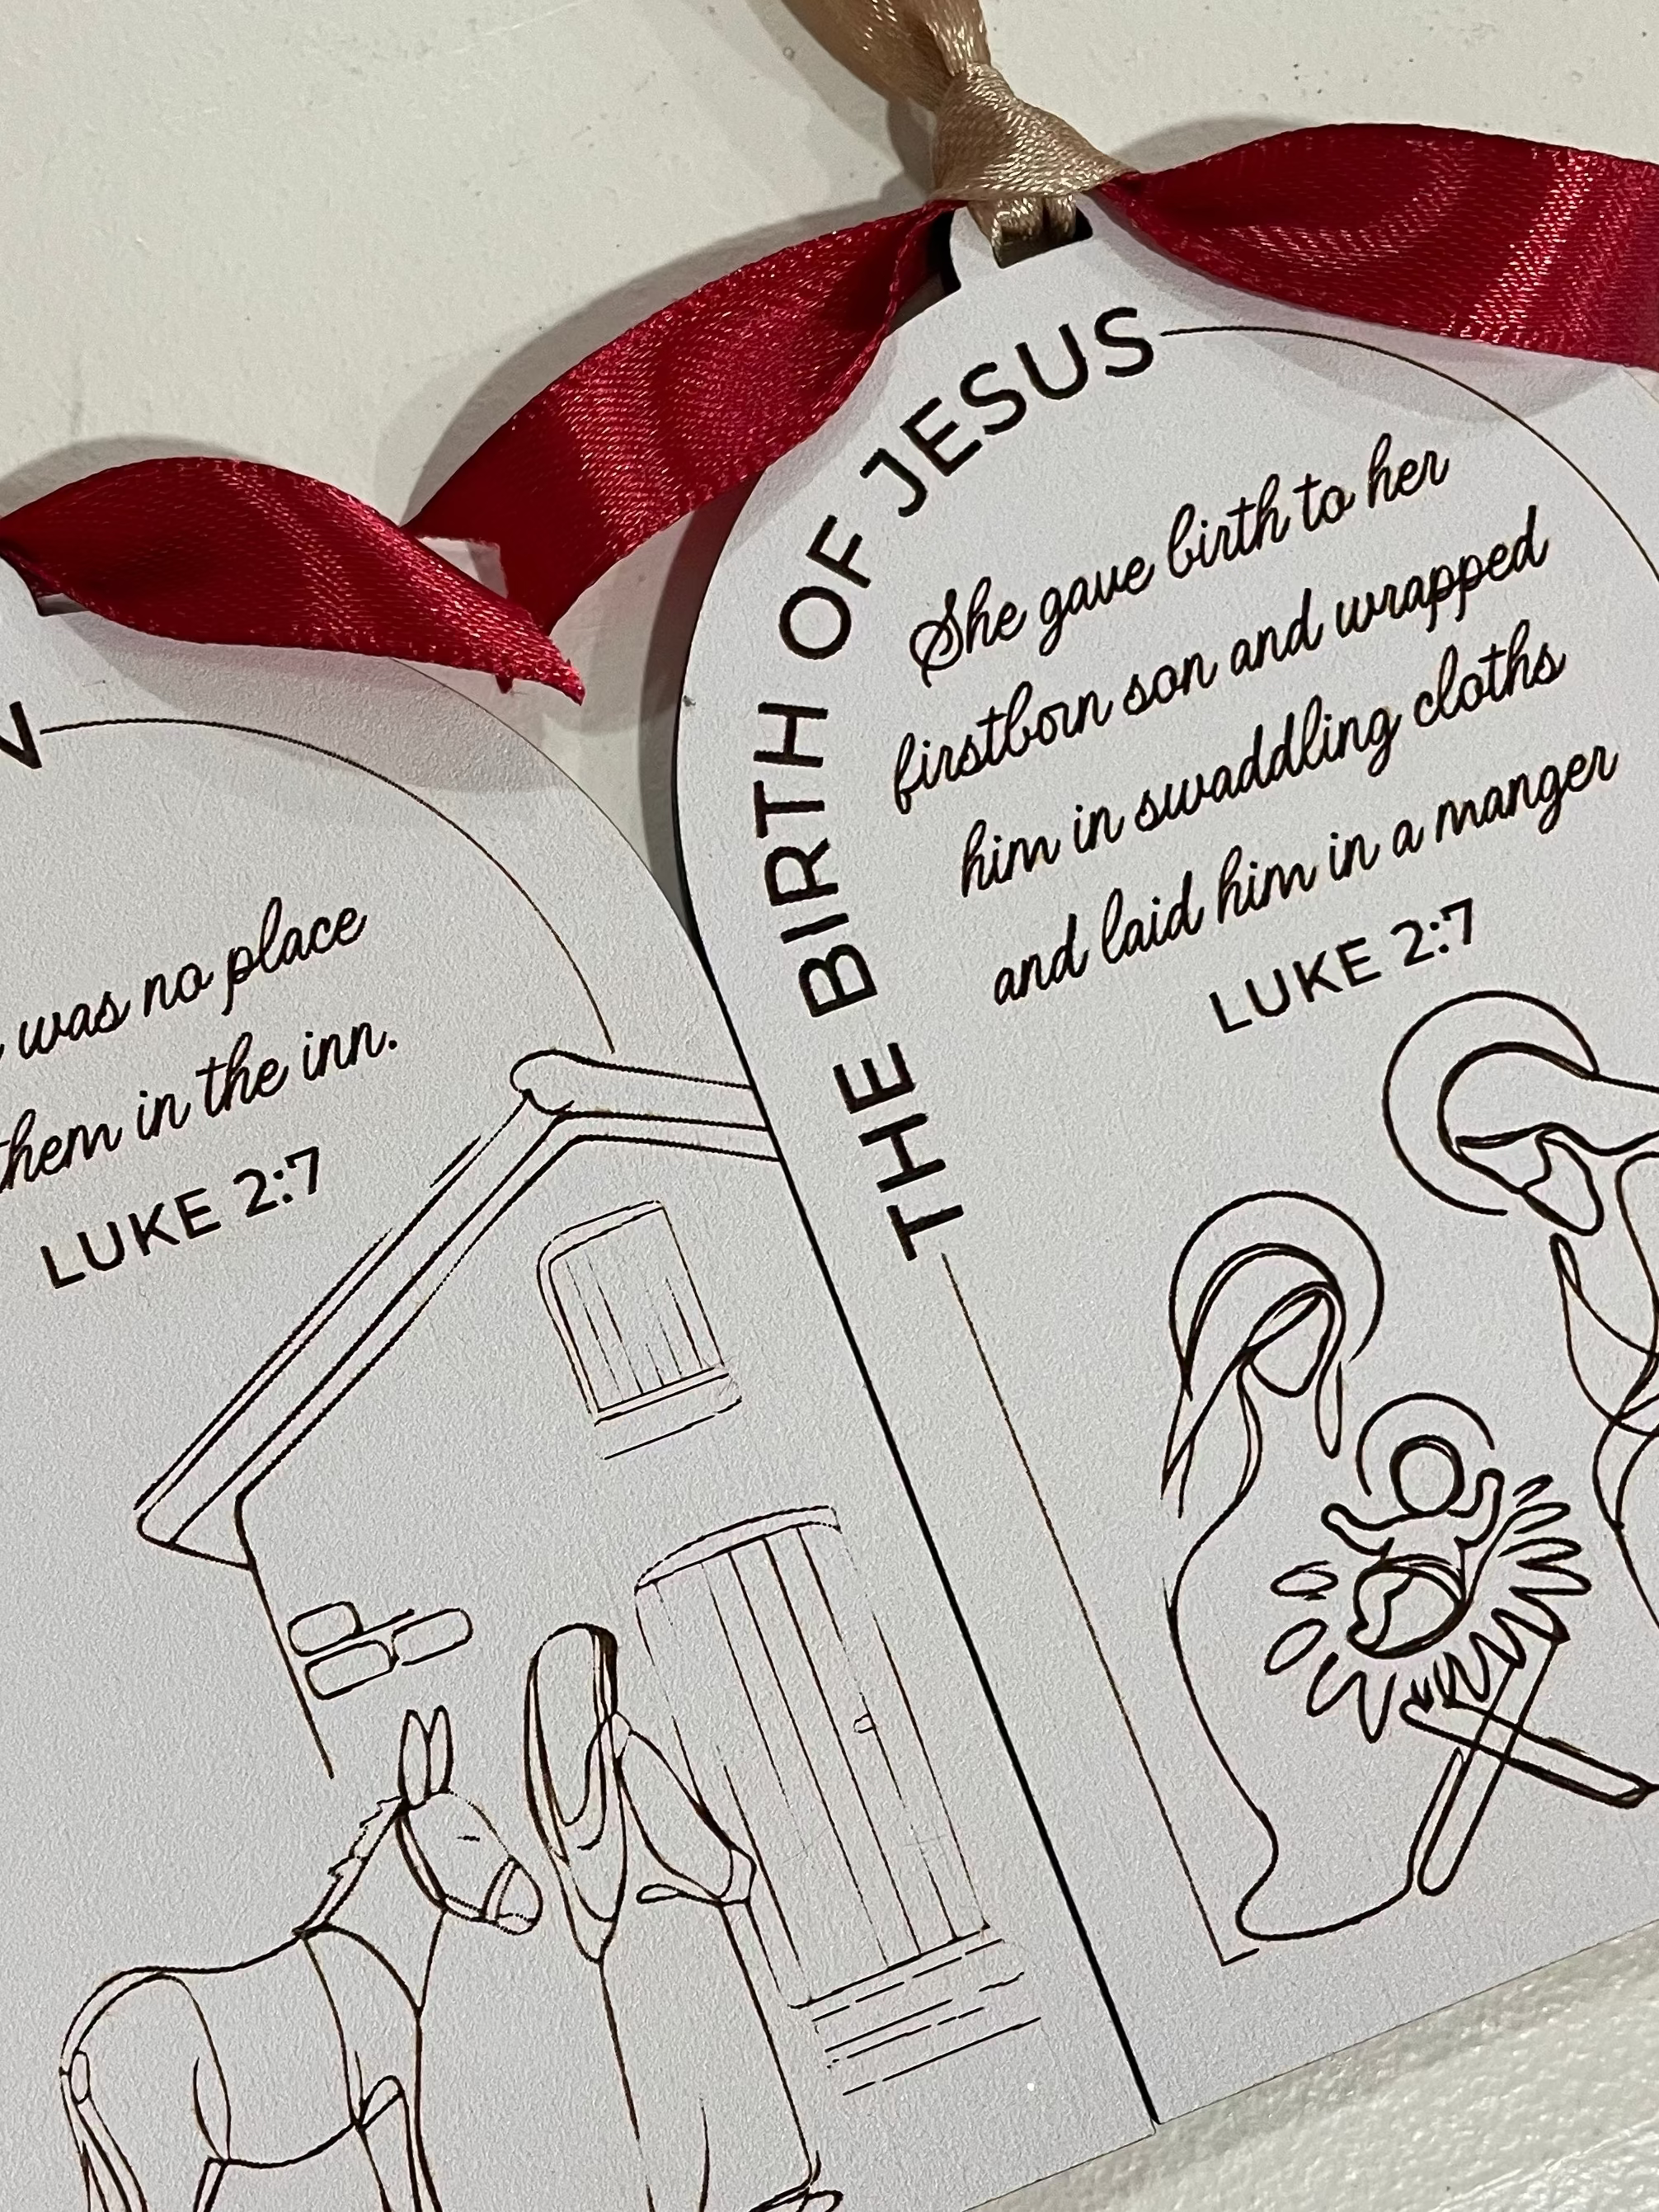 was no place
them in the inn.
LUKE 2:7
THE BIRTH OF JESUS
She gave birth to her
firstborn son and wrapped
him in swaddling cloths
and laid him in a manger
LUKE 2:7